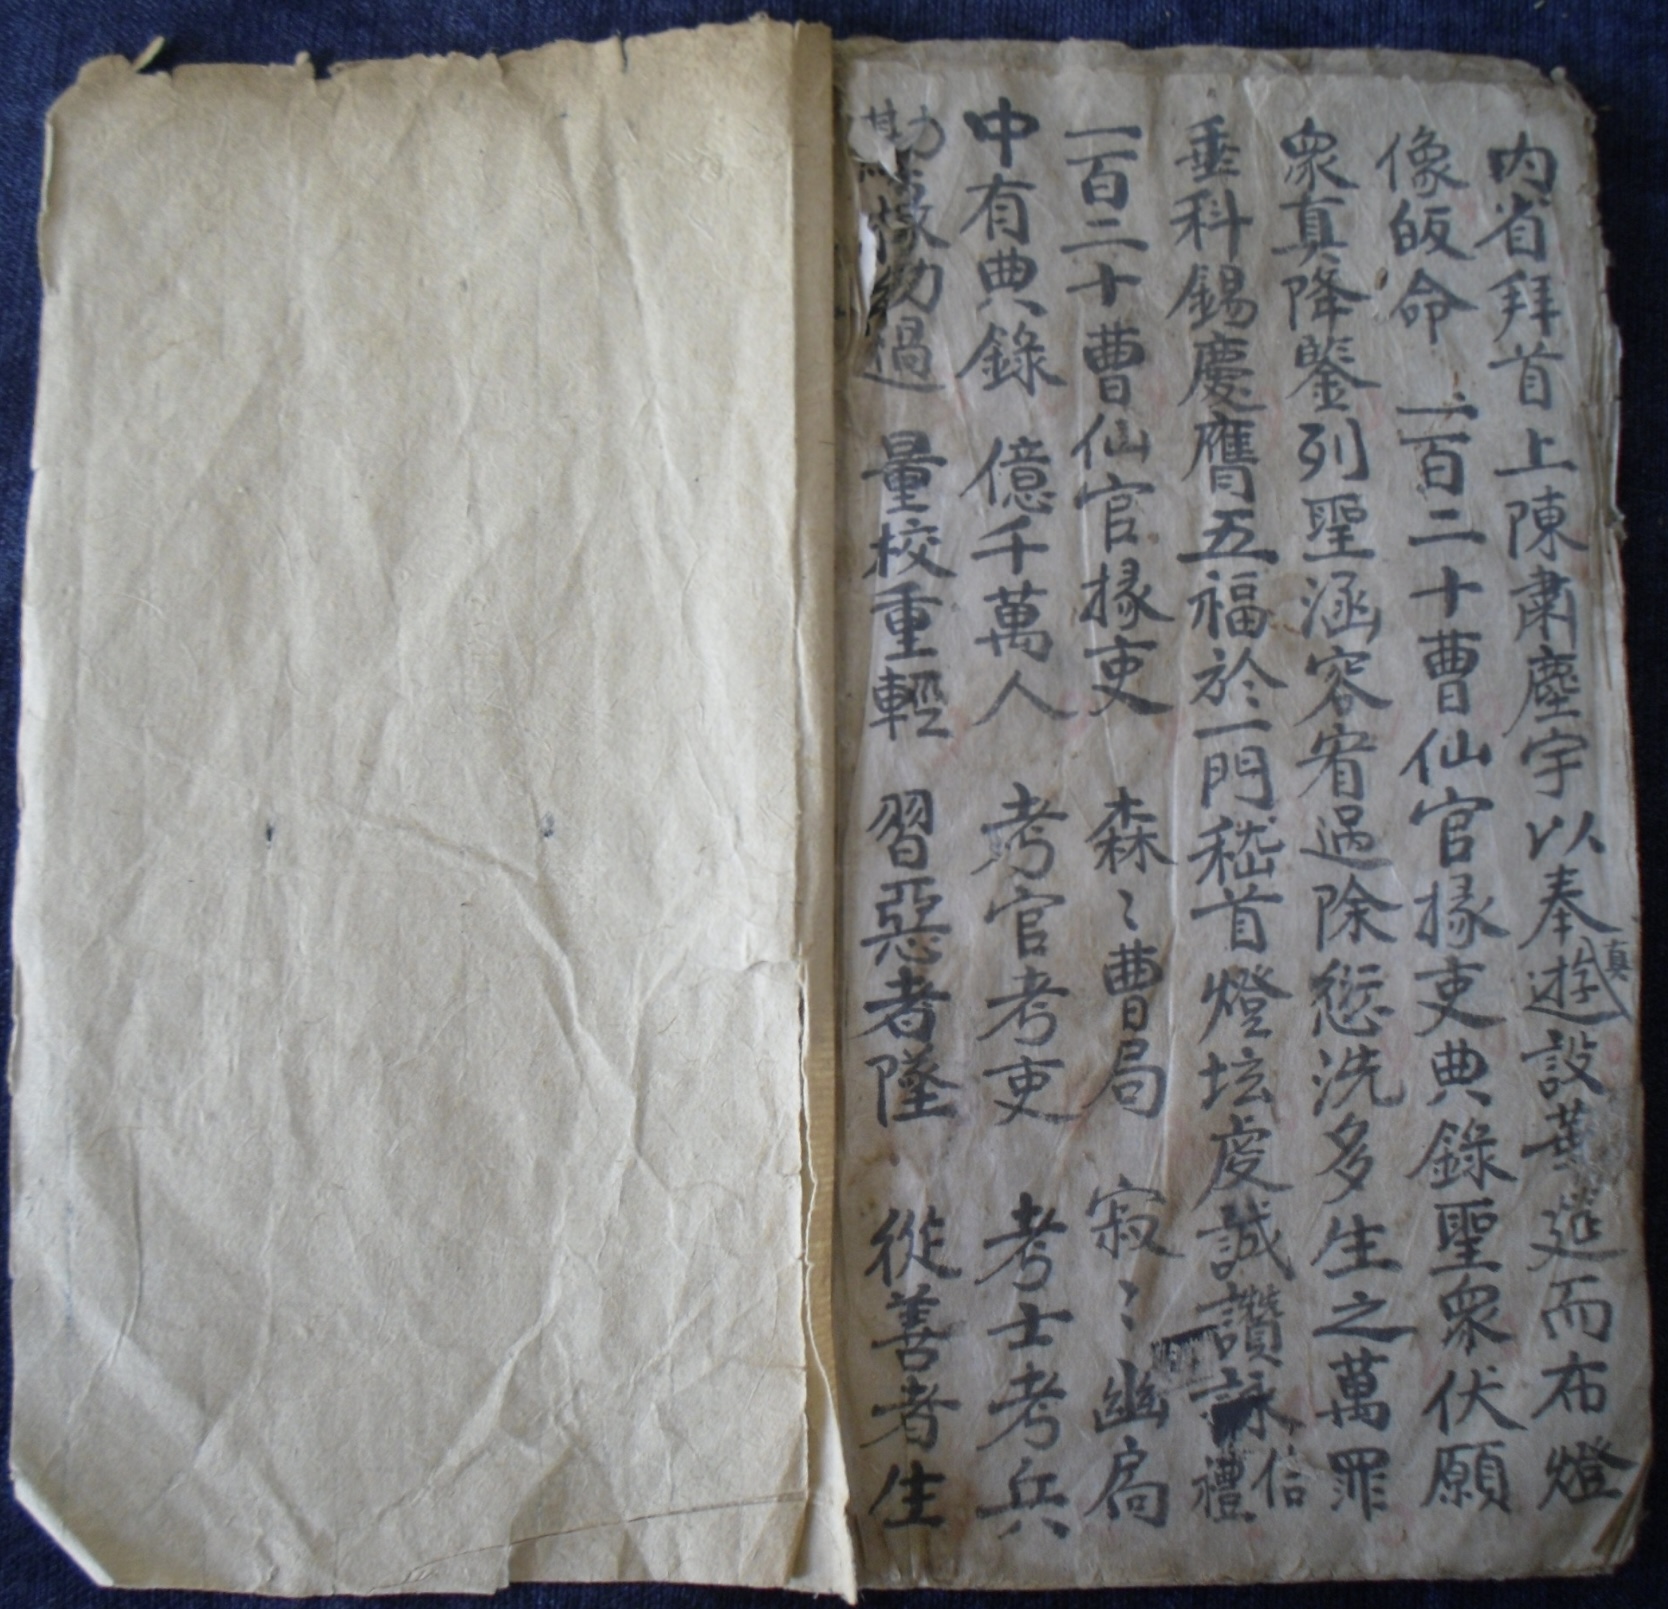 內省拜首上陳肅塵宇以奉遊真設黃筵而布燈
像皈命一百二十曹仙官掾吏典錄聖衆伏願
衆真降鑒列聖涵容宥過除愆洗多生之萬罪
垂科錫慶膺五福於一門嵇首燈坛虔誠讚詠信禮
一百二十曹仙官掾吏 森〻曹局 寂〻幽局
中有典錄 億千萬人 考官考吏 考士考兵
勘 劾過 量校重輕 習惡者墜 從善者生